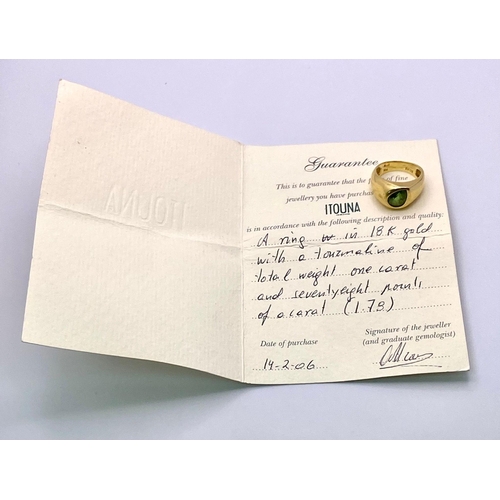 Guarantee
This is to guarantee that the of fine
jewellery you have purchas
ITOUNA
is in accordance with the following description and quality:
A ring in 18K gold
with a tourmaline of
total weight one carat
and seventyeight points
of a carat (1.78)
Date of purchase
Signature of the jeweller
(and graduate gemologist)
14-2-06
ITOUNA